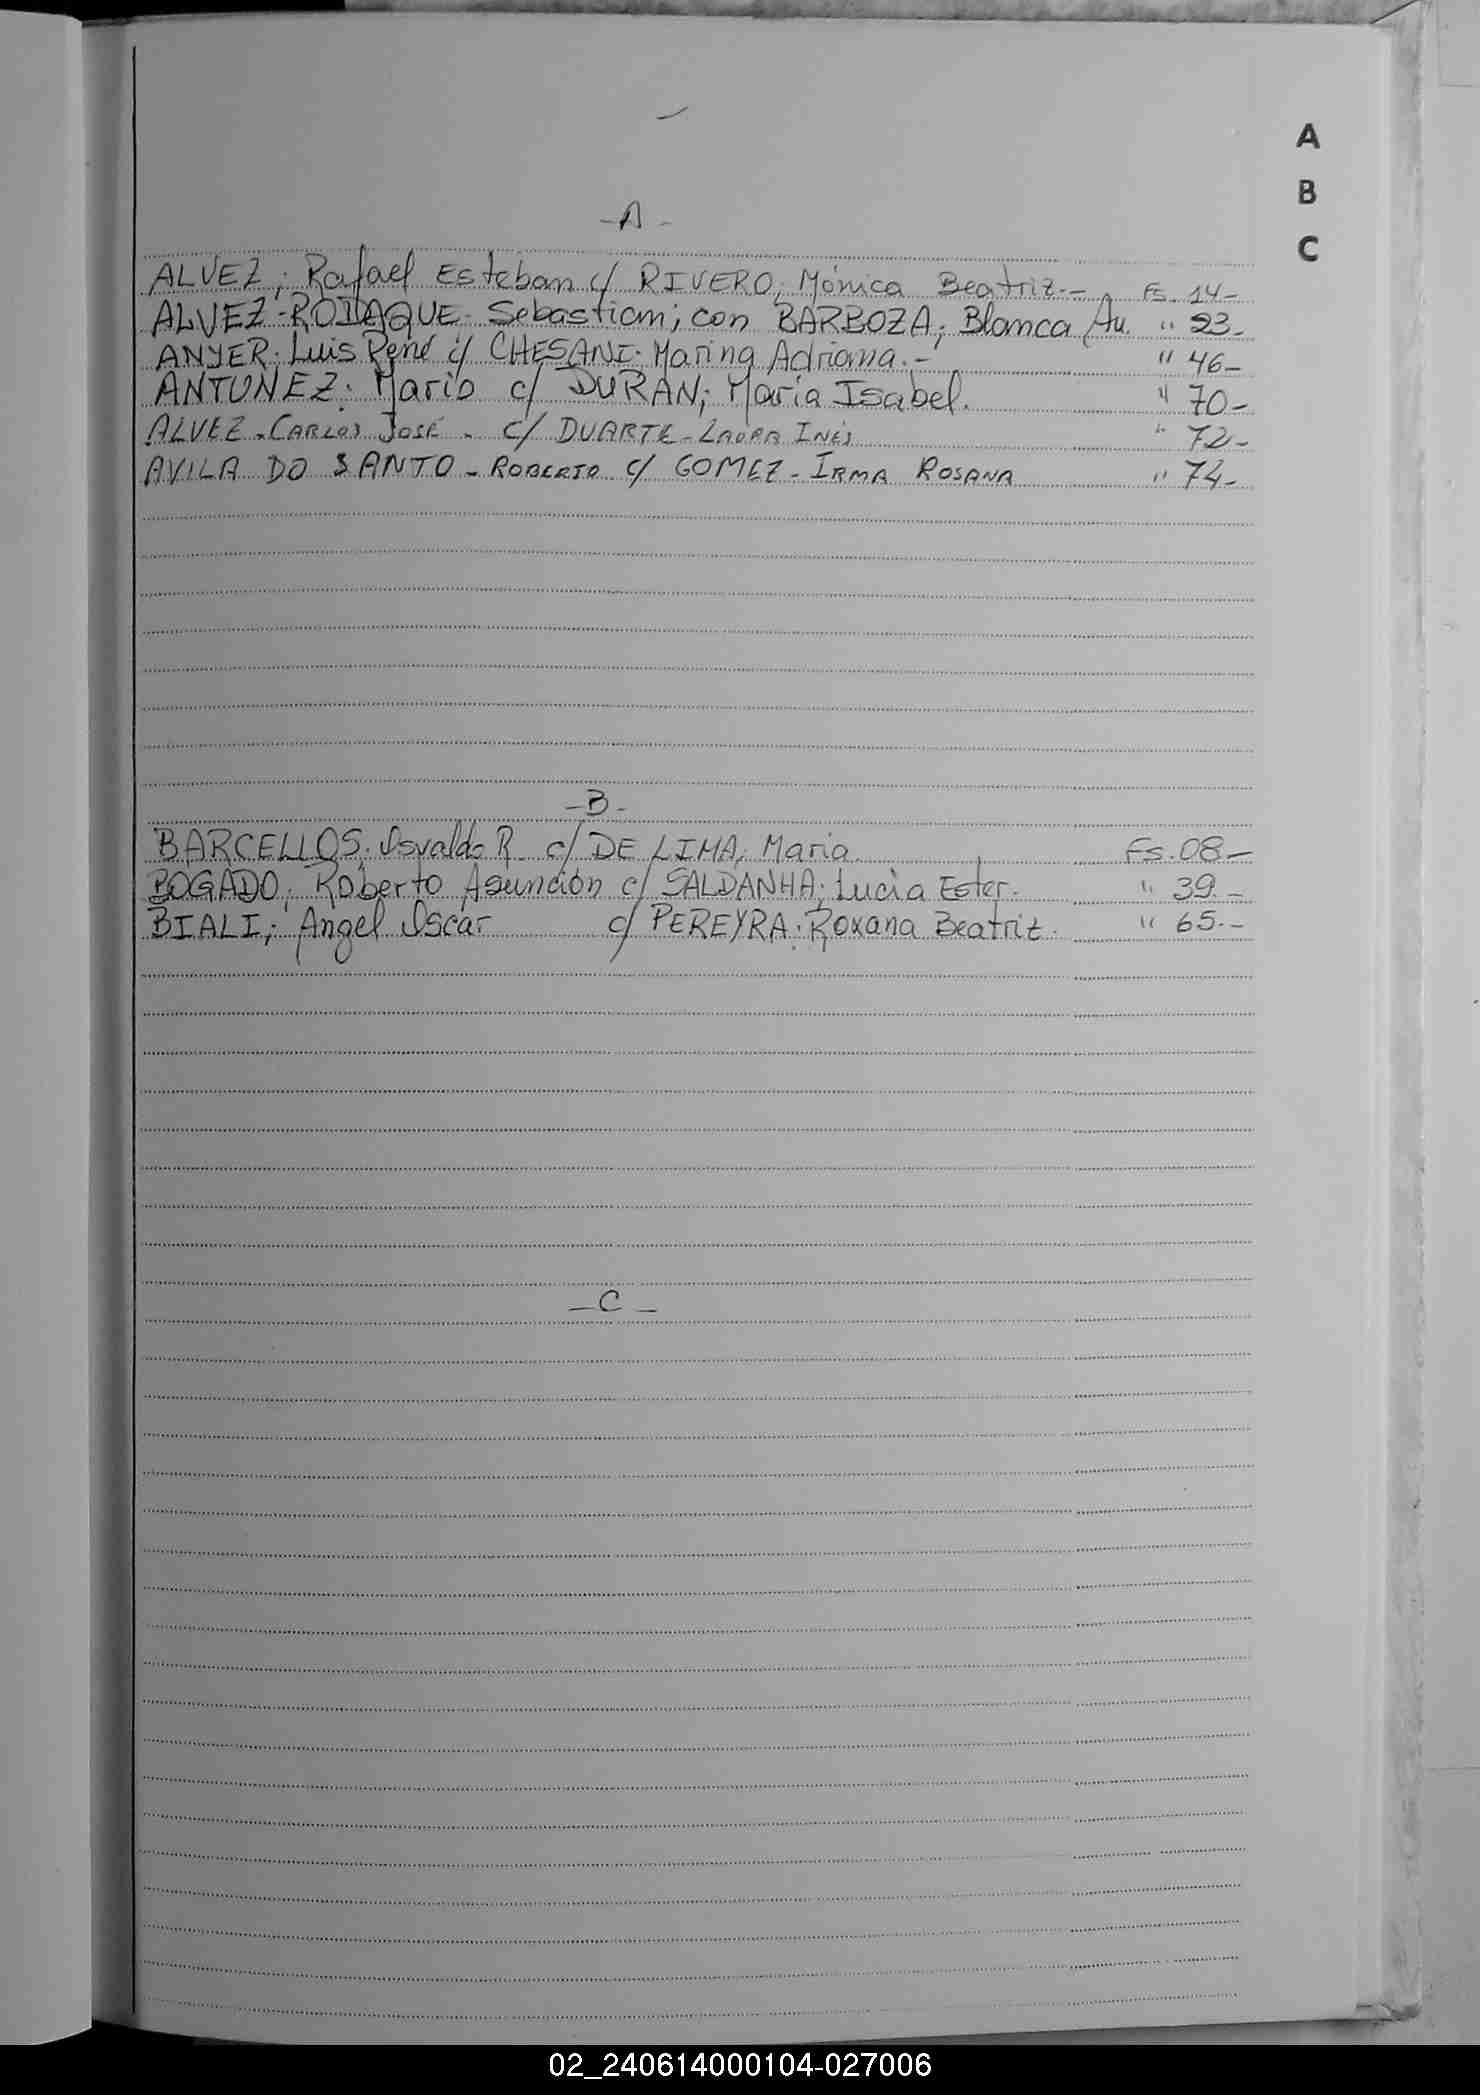 A
B
C
-A-
ALVEZ; Rafael Esteban c/ RIVERO; Mónica Beatriz.- Fs. 14-
ALVEZ-RODAQUE- Sebastian; con BARBOZA; Blanca Au. " 23-
ANYER. Luis René c/ CHESANI. Marina Adriana.- " 46-
ANTUNEZ; Mario c/ DURAN; María Isabel. " 70-
ALVEZ-CARLOS JOSÉ - c/ DUARTE-LAURA INÉS " 72-
AVILA DO SANTO - ROBERTO c/ GOMEZ-IRMA ROSANA " 74-
-B-
BARCELLOS; Osvaldo R. c/ DE LIMA; Maria. Fs. 08-
BOGADO; Roberto Asunción c/ SALDANHA; Lucía Ester. " 39.-
BIALI; Angel Oscar c/ PEREYRA; Roxana Beatriz. " 65.-
-C-
02_240614000104-027006